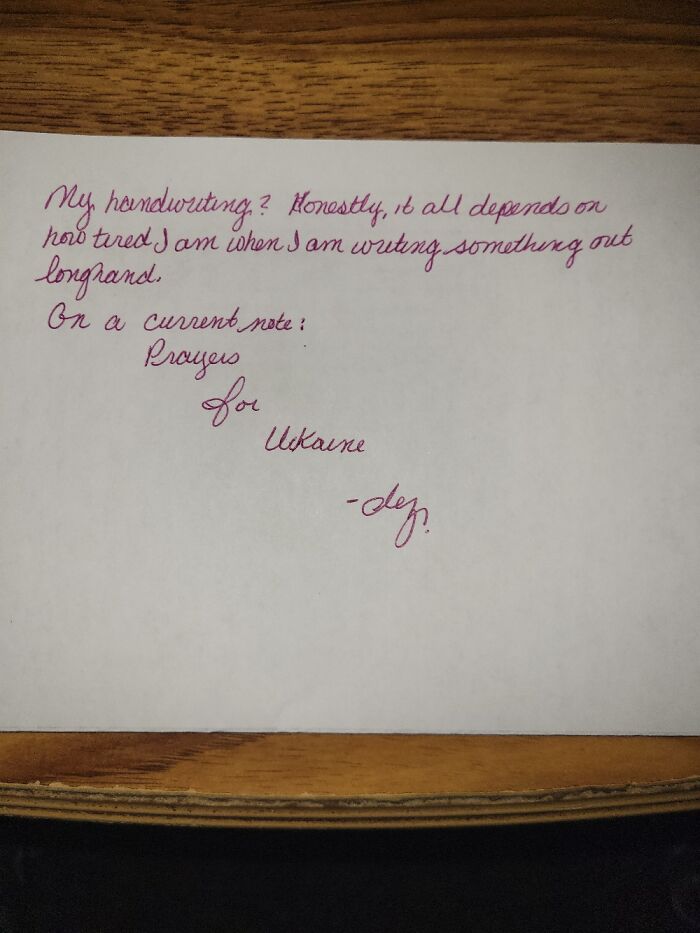 My handwriting? Honestly, it all depends on
how tired I am when I am writing something out
longhand.
On a current note:
Prayers
for
Ukraine